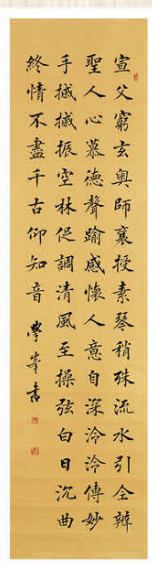 宣父窮玄奧師襄授素琴稍殊流水引全辨
聖人心慕德聲踰感懷人意自深泠泠傳妙
手摵摵振空林促調清風至操弦白日沉曲
終情不盡千古仰知音 學峯書